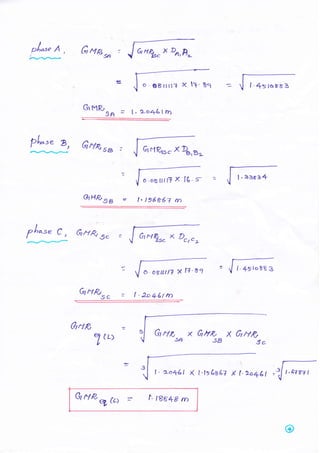 phase A, GMR_SA = √ GMR_sc × D_A1A2
= √ 0.0811117 × 17.89 = √ 1.4510883
GMR_SA = 1.20461m
phase B, GMR_SB = √ GMR_sc × D_B1B2
= √ 0.0811117 × 16.5 = √ 1.33834
GMR_SB = 1.156867 m
phase C, GMR_SC = √ GMR_sc × D_C1C2
= √ 0.0811117 × 17.89 = √ 1.4510883
GMR_SC = 1.20461m
GMR_eq (L) = 3√ GMR_SA × GMR_SB × GMR_SC
= 3√ 1.20461 × 1.156867 × 1.20461 = 3√
GMR_eq (L) = 1.18848 m